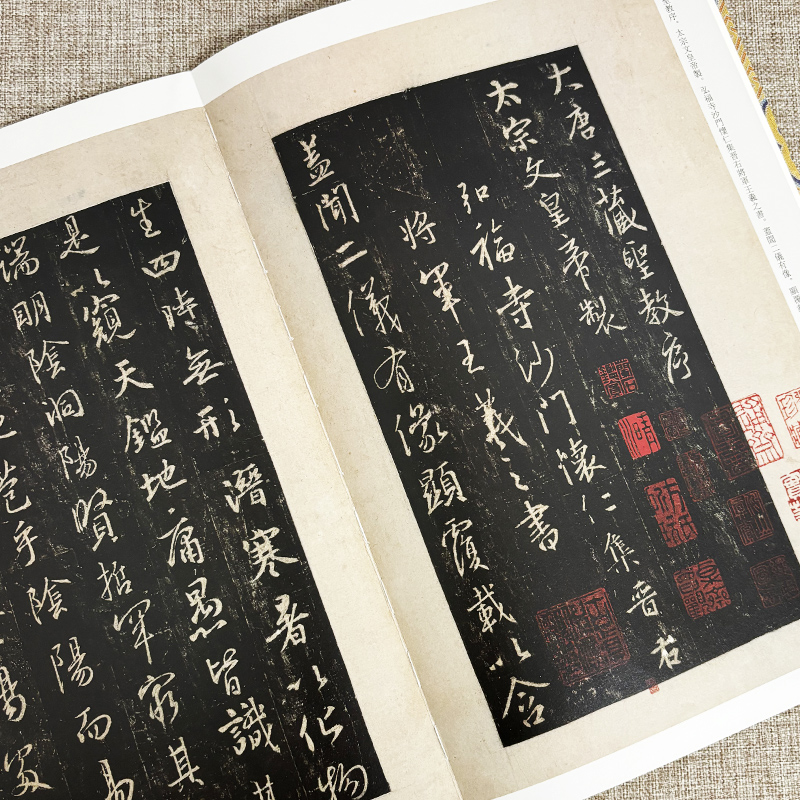 聖教序，太宗文皇帝製，弘福寺沙門懷仁集晋右將軍王羲之書。蓋聞二儀有像，顯覆
大唐三藏聖教序
太宗文皇帝製
弘福寺沙門懷仁集晉右
將軍王羲之書
蓋聞二儀有像顯覆載以含
生四時無形潛寒暑以化物
是以窺天鑑地庸愚皆識其
端明陰洞陽賢哲罕窮其
苞乎陰陽而易
陽處